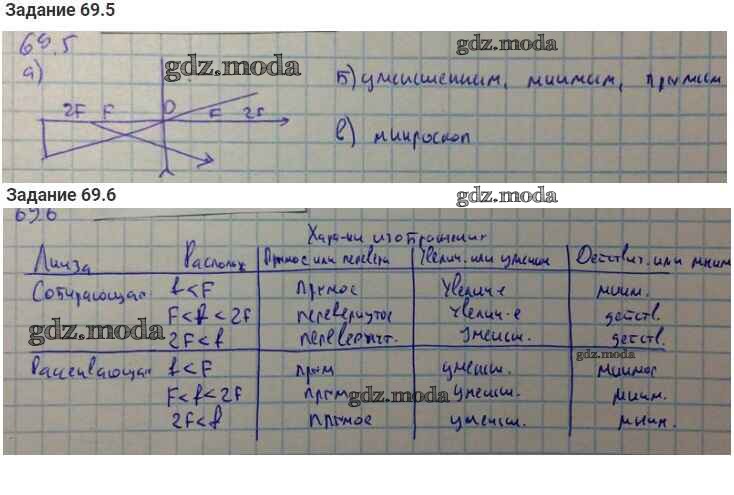 Задание 69.5
69.5
gdz.moda
а)
gdz.moda
Б) уменшенным, мнимым, прямым
2F F O F 2F
в) микроскоп
Задание 69.6
gdz.moda
69.6
Хар-ки изображения
Линза Располож Прямое или переверн Увелич. или уменьш Действит. или мним
Собирающая f<F прямое увелич-е мним.
F<f<2F перевернутое увелич-е действ.
gdz.moda
2F<f перевернут. уменьш. действ.
gdz.moda
Рассеивающая f<F прям уменьш. мнимое
F<f<2F прям уменьш. мним.
gdz.moda
2F<f прямое уменьш. мним.